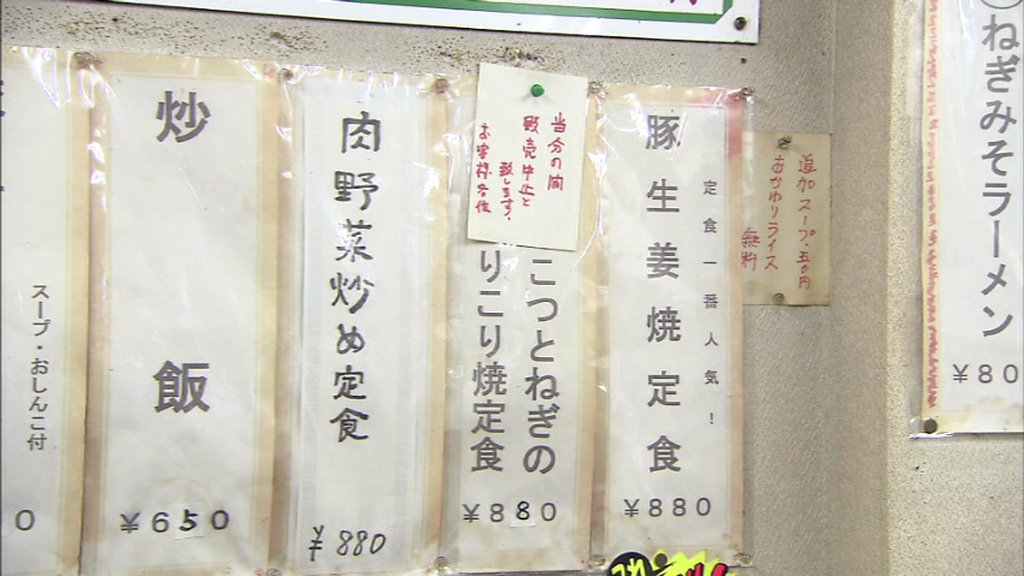 ねぎみそラーメン
¥80
追加スープ・五〇円
おかわりライス
無料
定食一番人気！
豚生姜焼定食
¥880
当分の間
販売中止と
致します。
お客様各位
こつとねぎの
りこり焼定食
¥880
肉野菜炒め定食
¥880
炒飯
¥650
スープ・おしんこ付
0